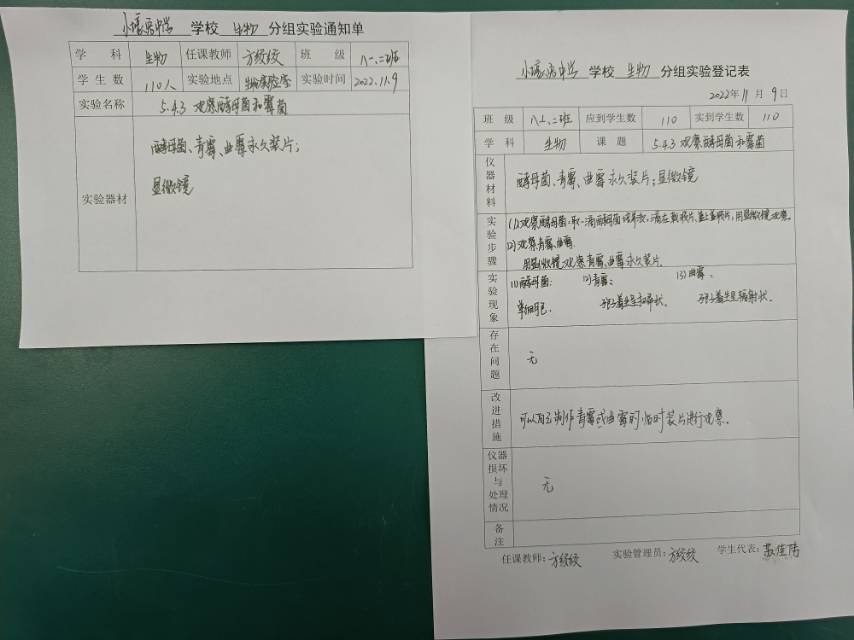 中学 学校 生物 分组实验通知单
学科 生物 任课教师 班级 八一、二班
学生数 110人 实验地点 生物实验室 实验时间 2022.11.9
实验名称 5.4.3 观察酵母菌和霉菌
实验器材
酵母菌、青霉、曲霉永久装片；
显微镜
中学 学校 生物 分组实验登记表
2022年 11月 9日
班级 八一、二班 应到学生数 110 实到学生数 110
学科 生物 课题 5.4.3 观察酵母菌和霉菌
仪器材料 酵母菌、青霉、曲霉永久装片；显微镜
实验步骤
(1)观察酵母菌：取一滴酵母菌培养液，滴在载玻片，盖上盖玻片，用显微镜观察。
(2)观察青霉、曲霉
用显微镜观察青霉、曲霉永久装片。
实验现象
(1)酵母菌： (2)青霉： (3)曲霉：
单细胞。 孢子着生呈扫帚状。 孢子着生呈辐射状。
存在问题 无
改进措施 可以自己制作青霉或曲霉的临时装片进行观察。
仪器损坏与处理情况 无
备注
任课教师： 实验管理员： 学生代表：